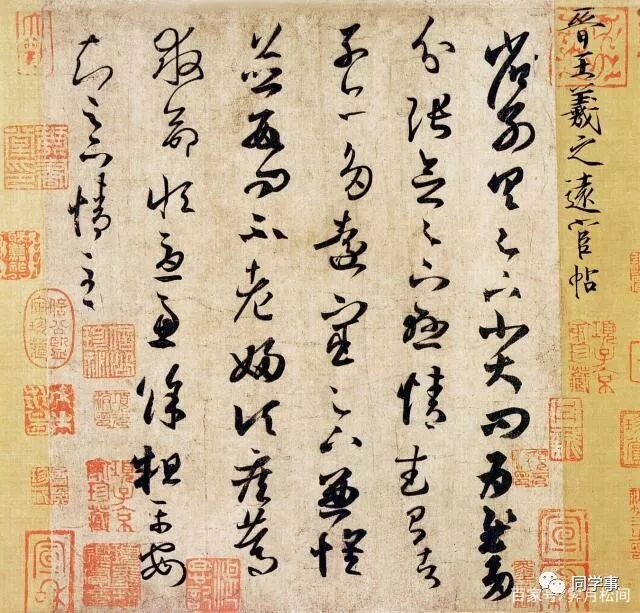 晉王羲之遠宦帖
省別具足下小大問為慰多
分張念足下懸情武昌諸
子亦多遠宦足下兼懷
並數問不老婦頃疾篤
救命恒憂慮餘粗平安
知足下情至
項子京家珍藏
項子京家珍藏
同学事
百家号/月松间